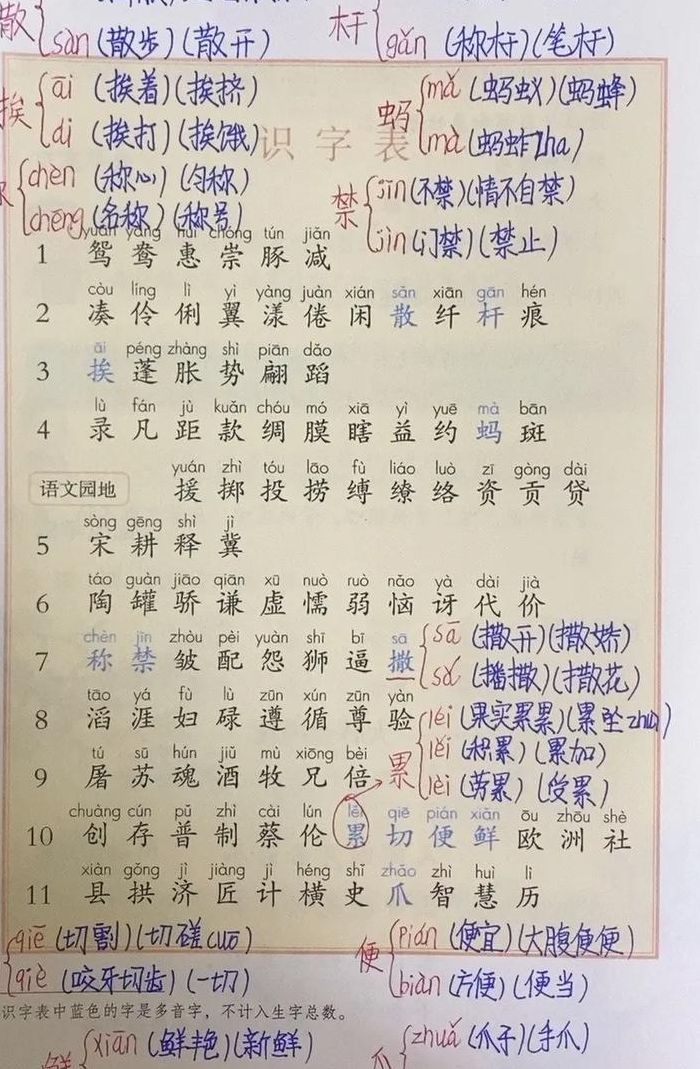 散 sàn (散步)(散开)
杆 gǎn (称杆)(笔杆)
挨 āi (挨着)(挨挤)
ái (挨打)(挨饿)
蚂 mǎ (蚂蚁)(蚂蜂)
mà (蚂蚱zha)
识字表
chèn (称心)(匀称)
chēng (名称)(称号)
禁 jīn (不禁)(情不自禁)
jìn (门禁)(禁止)
yuān yāng huì chóng tún jiǎn
1 鸳 鸯 惠 崇 豚 减
còu líng lì yì yàng juàn xián sǎn xiān gān hén
2 凑 伶 俐 翼 漾 倦 闲 散 纤 杆 痕
āi péng zhàng shì piān dǎo
3 挨 蓬 胀 势 翩 蹈
lù fán jù kuǎn chóu mó xiā yì yuē mà bān
4 录 凡 距 款 绸 膜 瞎 益 约 蚂 斑
yuán zhì tóu lāo fù liáo luò zī gòng dài
语文园地 援 掷 投 捞 缚 缭 络 资 贡 贷
sòng gēng shì jì
5 宋 耕 释 冀
táo guàn jiāo qiān xū nuò ruò nǎo yà dài jià
6 陶 罐 骄 谦 虚 懦 弱 恼 讶 代 价
chèn jīn zhòu pèi yuàn shī bī sā
7 称 禁 皱 配 怨 狮 逼 撒
sā (撒开)(撒娇)
sǎ (播撒)(撒花)
tāo yá fù lù zūn xún zūn yàn
8 滔 涯 妇 碌 遵 循 尊 验
累 léi (果实累累)(累坠zhuì)
lěi (积累)(累加)
lèi (劳累)(受累)
tú sū hún jiǔ mù xiōng bèi
9 屠 苏 魂 酒 牧 兄 倍
chuàng cún pǔ zhì cài lún lěi qiē pián xiān ōu zhōu shè
10 创 存 普 制 蔡 伦 累 切 便 鲜 欧 洲 社
xiàn gǒng jì jiàng jì héng shǐ zhǎo zhì huì lì
11 县 拱 济 匠 计 横 史 爪 智 慧 历
qiē (切割)(切磋cuō)
qiè (咬牙切齿)(一切)
便 pián (便宜)(大腹便便)
biàn (方便)(便当)
识字表中蓝色的字是多音字，不计入生字总数。
鲜 xiān (鲜艳)(新鲜)
爪 zhuǎ (爪子)(手爪)